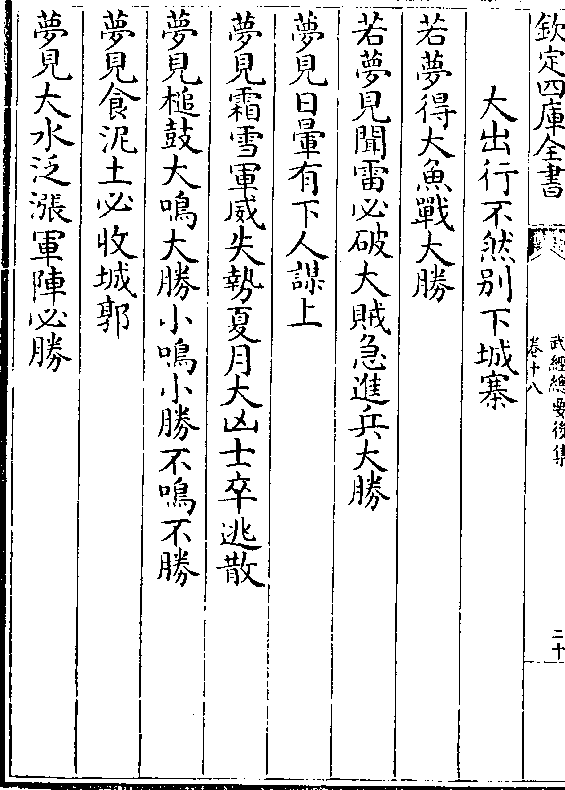 欽定四庫全書
武經總要後集
卷十八
二十
大出行不然别下城寨
若夢得大魚戰大勝
若夢見聞雷必破大賊急進兵大勝
夢見日暈有下人謀上
夢見霜雪軍威失勢夏月大凶士卒逃散
夢見槌鼓大鳴大勝小鳴小勝不鳴不勝
夢見食泥土必收城郭
夢見大水泛漲軍陣必勝